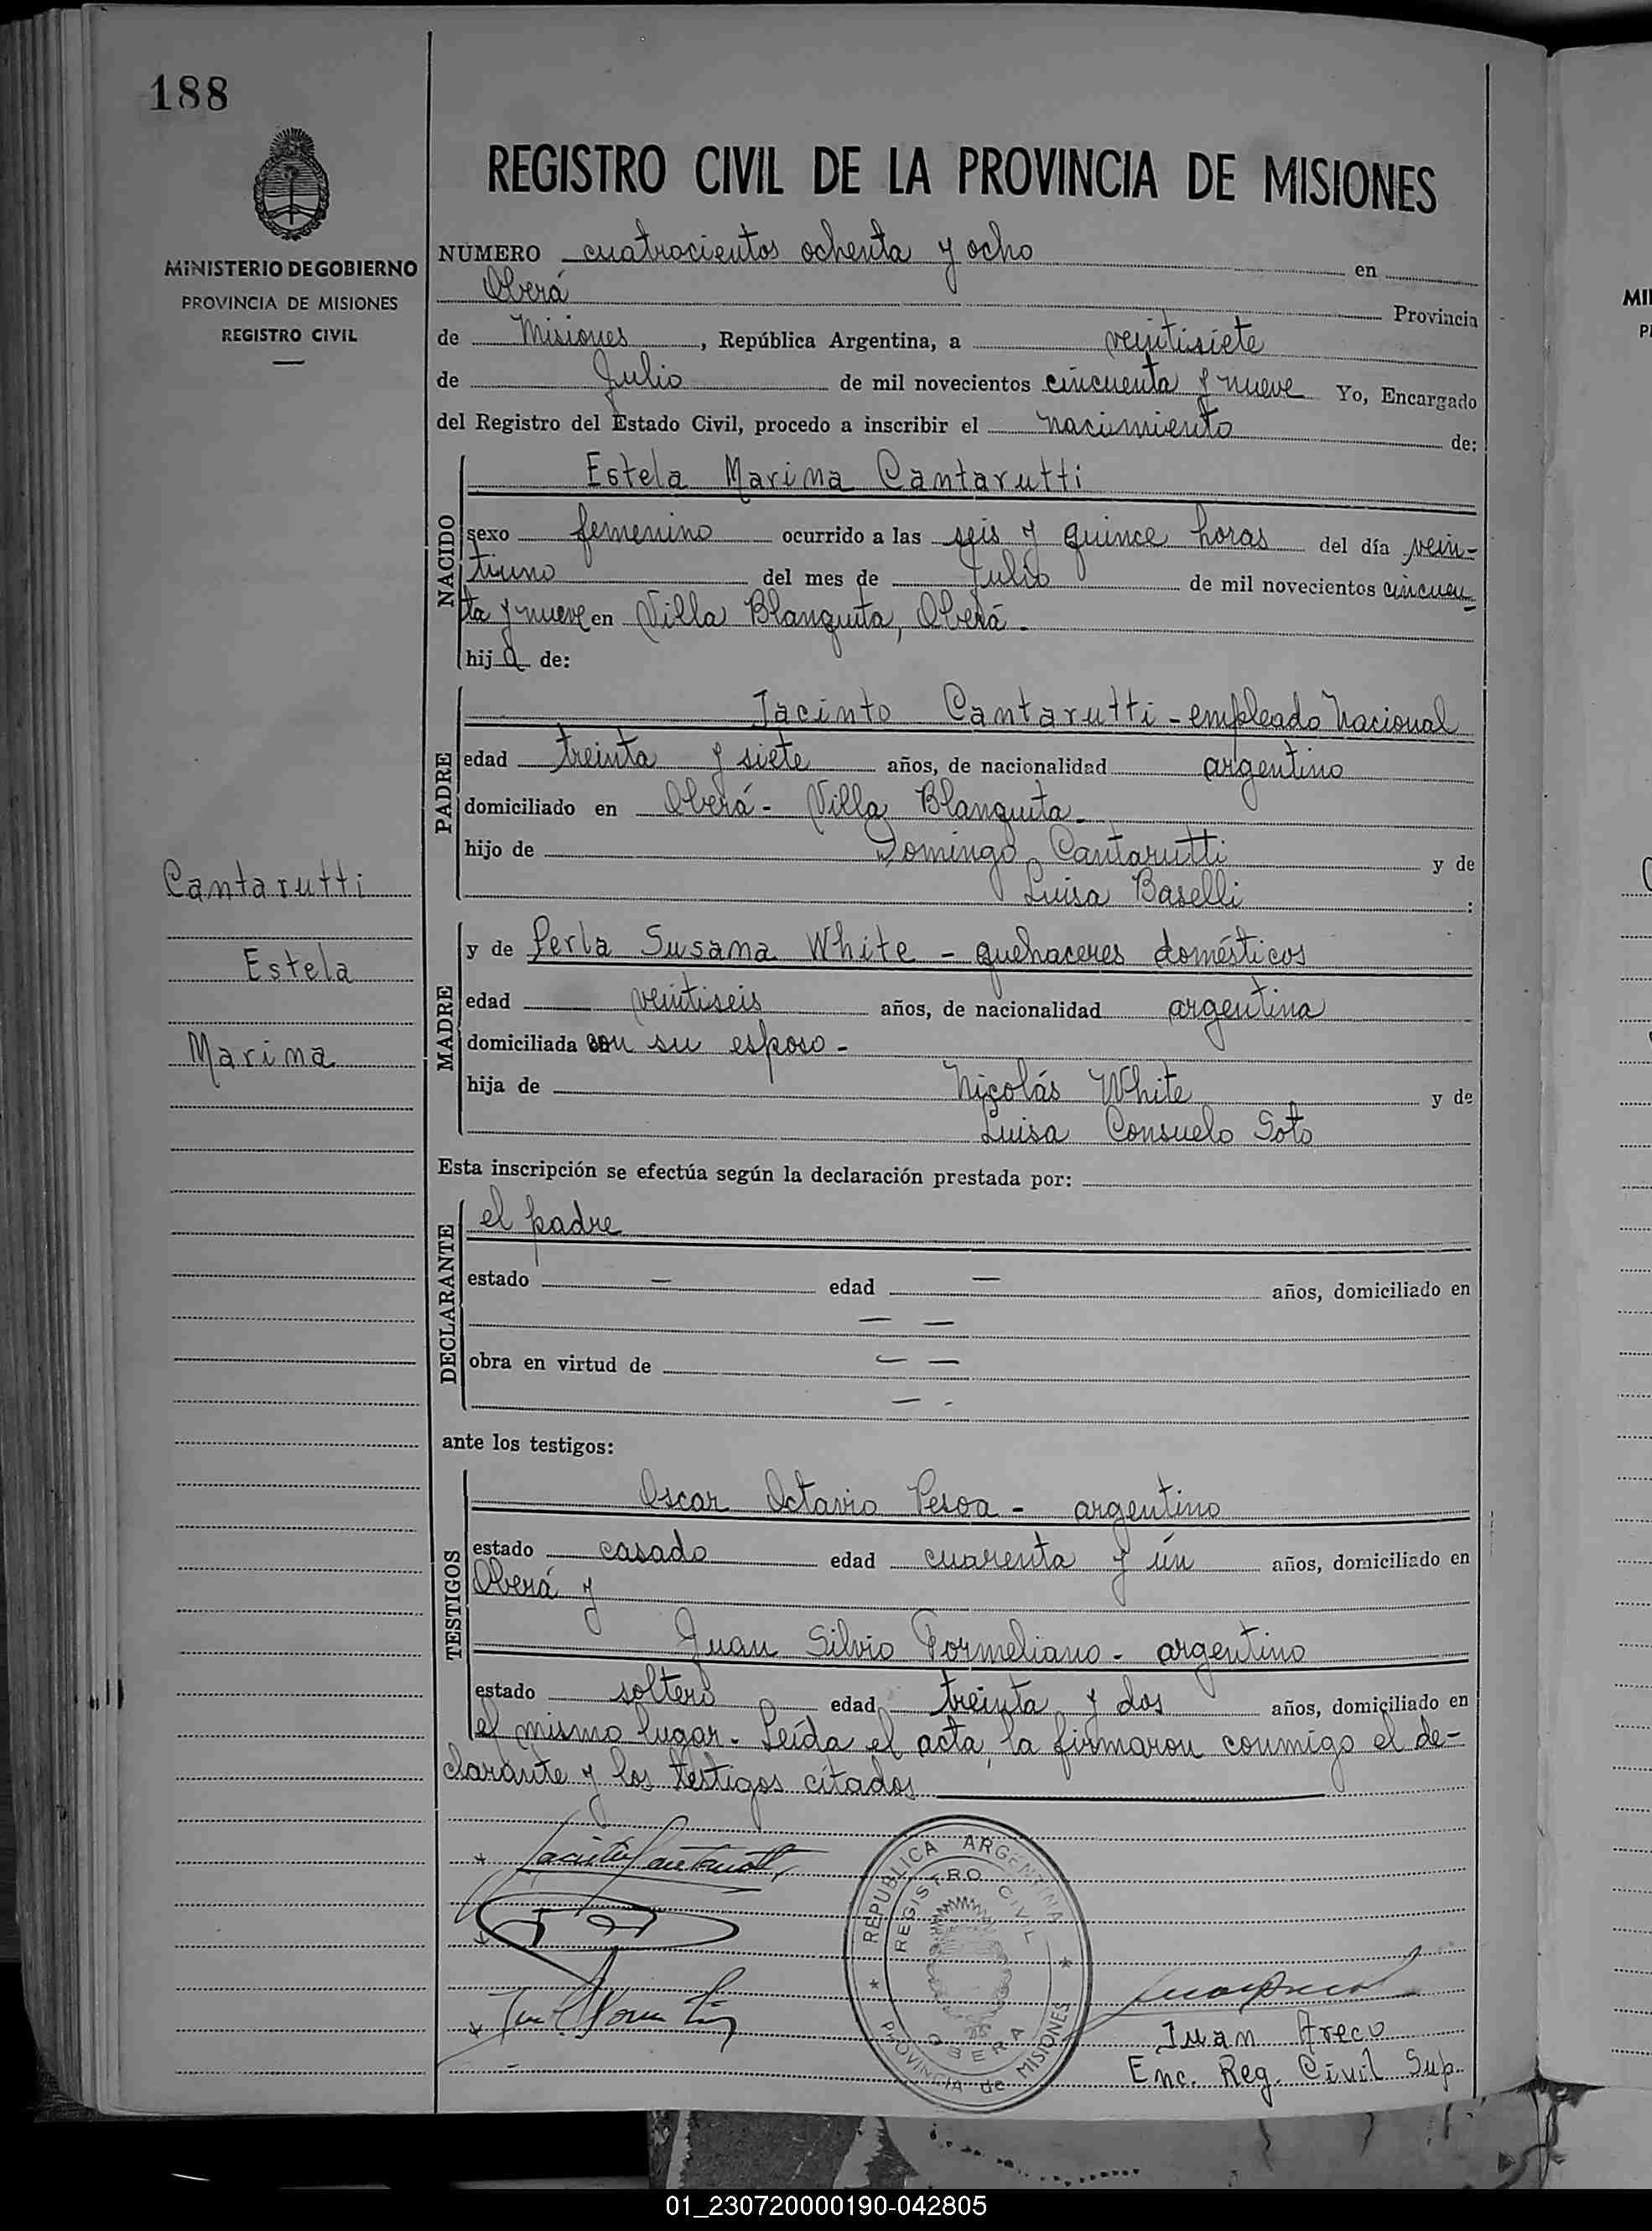 188
MINISTERIO DE GOBIERNO
PROVINCIA DE MISIONES
REGISTRO CIVIL
Cantarutti
Estela
Marina
REGISTRO CIVIL DE LA PROVINCIA DE MISIONES
NUMERO cuatrocientos ochenta y ocho en
Oberá Provincia
de Misiones, República Argentina, a veintisiete
de Julio de mil novecientos cincuenta y nueve Yo, Encargado
del Registro del Estado Civil, procedo a inscribir el nacimiento de:
NACIDO
Estela Marina Cantarutti
sexo femenino ocurrido a las seis y quince horas del día vein-
tiuno del mes de Julio de mil novecientos cincuen-
ta y nueve en Villa Blanquita, Oberá.
hija de:
PADRE
Jacinto Cantarutti - empleado Nacional
edad treinta y siete años, de nacionalidad argentino
domiciliado en Oberá - Villa Blanquita.
hijo de Domingo Cantarutti y de
Luisa Baselli :
MADRE
y de Perla Susana White - quehaceres domésticos
edad veintiseis años, de nacionalidad argentina
domiciliada con su esposo -
hija de Nicolás White y de
Luisa Consuelo Soto
Esta inscripción se efectúa según la declaración prestada por:
DECLARANTE
el padre
estado — edad — años, domiciliado en
— —
obra en virtud de — —
— -
ante los testigos:
TESTIGOS
Oscar Octavio Pesoa - argentino
estado casado edad cuarenta y ún años, domiciliado en
Oberá y
Juan Silvio Formeliano - argentino
estado soltero edad treinta y dos años, domiciliado en
el mismo lugar. Leída el acta, la firmaron conmigo el de-
clarante y los testigos citados
REPUBLICA ARGENTINA
REGISTRO CIVIL
OBERA
PROVINCIA de MISIONES
Juan Areco
Enc. Reg. Civil Sup.
01_230720000190-042805